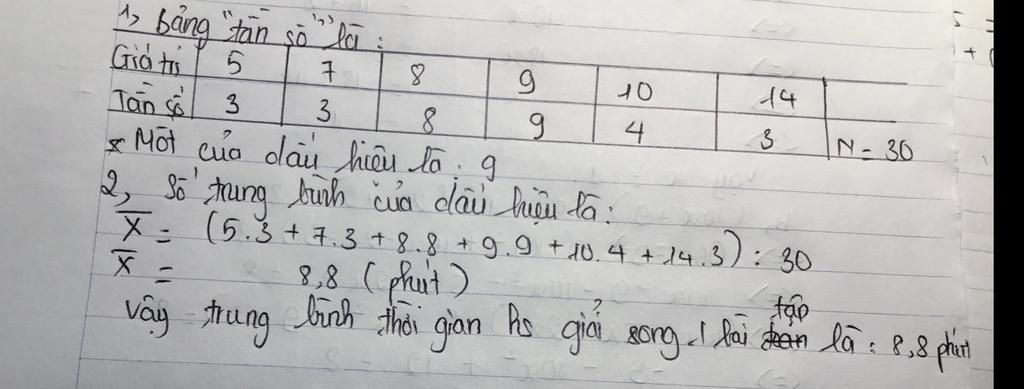 1, Bảng "tần số" là :
Giá trị 5 7 8 9 10 14
Tần số 3 3 8 9 4 3 N = 30
* Mốt của dấu hiệu là : 9
2, Số trung bình của dấu hiệu là :
X = (5.3 + 7.3 + 8.8 + 9.9 + 10.4 + 14.3) : 30
X = 8,8 (phút)
Vậy trung bình thời gian hs giải song 1 bài tập là : 8,8 phút